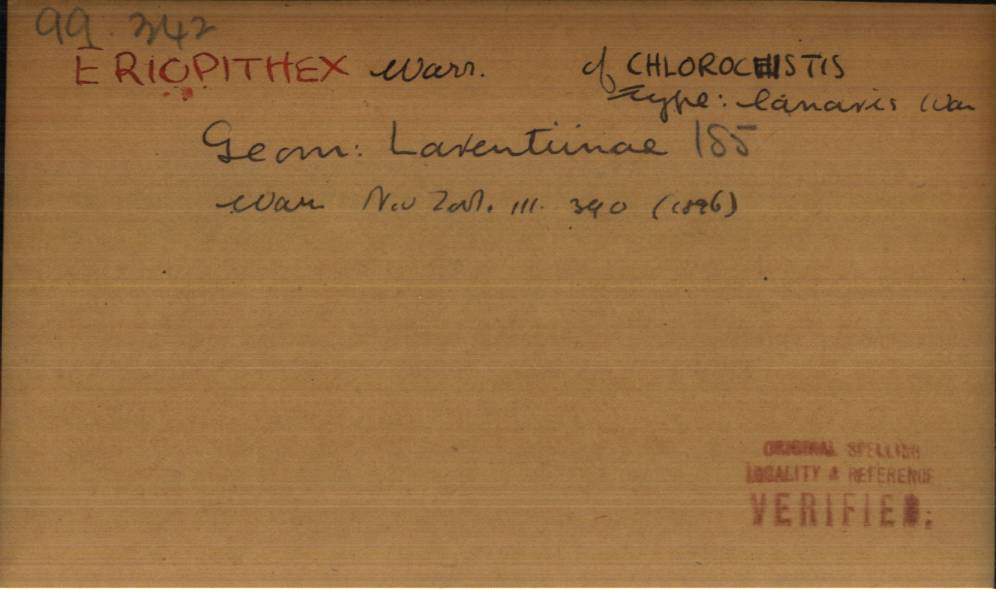 99. 342
ERIOPITHEX Warr. cf CHLOROCHISTIS
Type: lanaris War
Geom: Larentiinae 185
Warr Nov Zool. III. 390 (1896)
ORIGINAL SPELLING
LOCALITY & REFERENCE
VERIFIED.